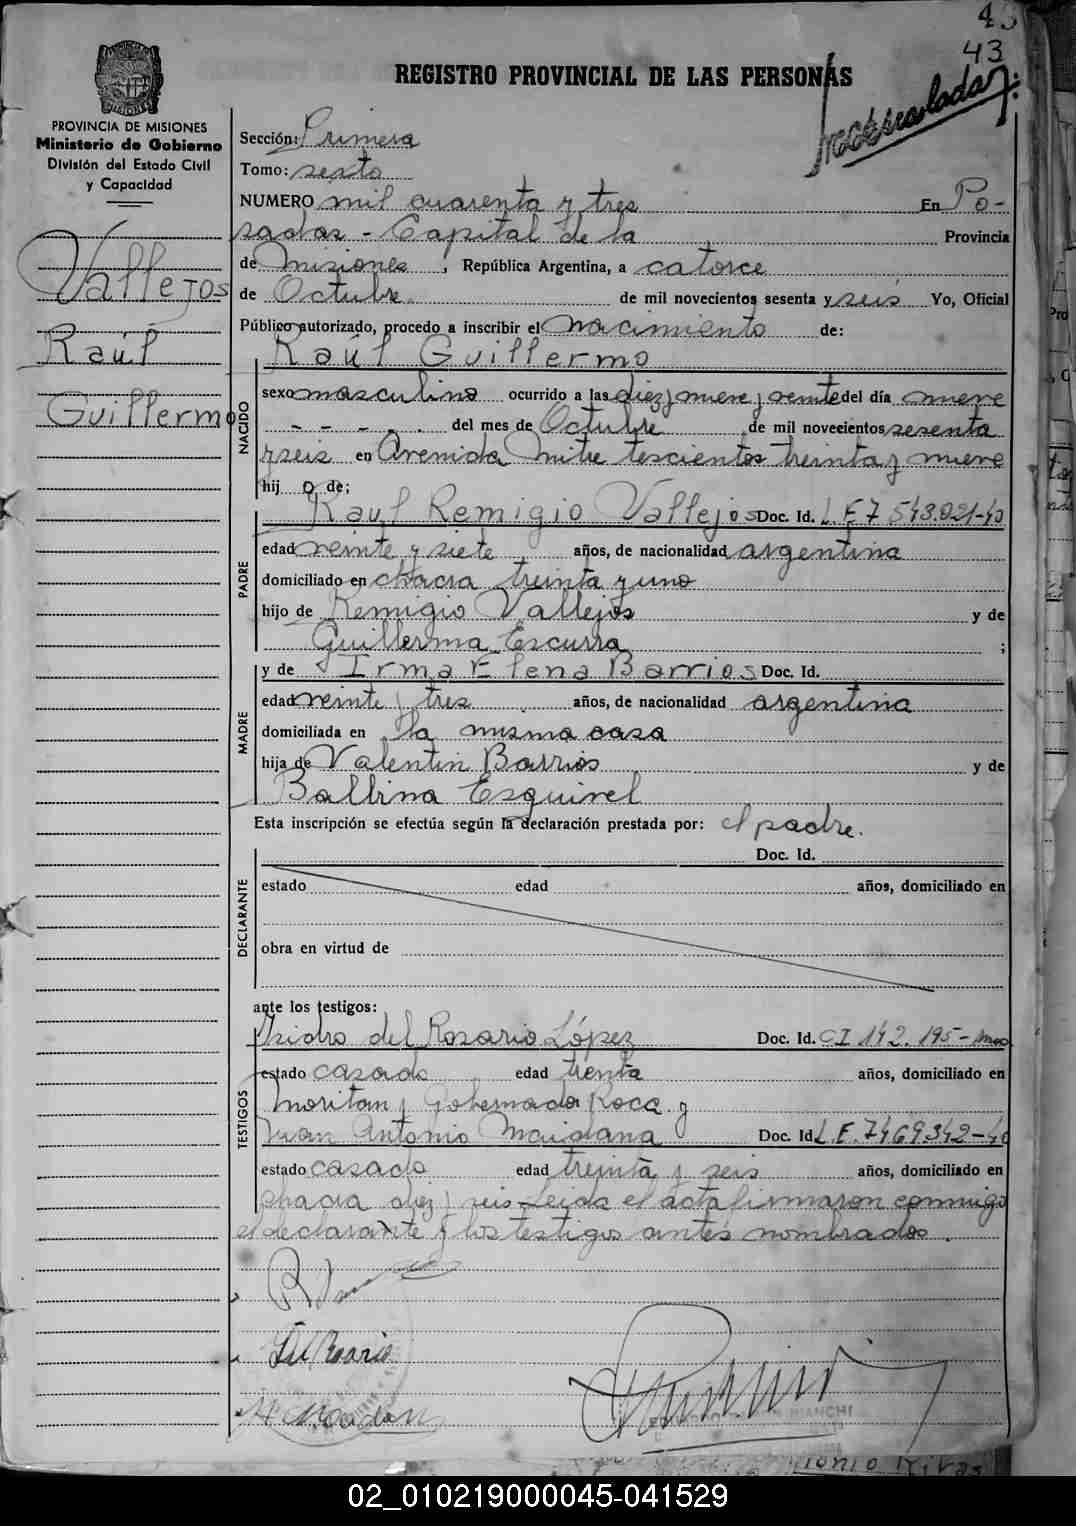 43
43
REGISTRO PROVINCIAL DE LAS PERSONAS
PROVINCIA DE MISIONES
Ministerio de Gobierno
División del Estado Civil
y Capacidad
Vallejos
Raúl
Guillermo
Sección: Primera
Tomo: sexto
NUMERO mil cuarenta y tres En Po-
sadas - Capital de la Provincia
de Misiones, República Argentina, a catorce
de Octubre de mil novecientos sesenta y seis Yo, Oficial
Público autorizado, procedo a inscribir el nacimiento de:
Raúl Guillermo
NACIDO
sexo masculino ocurrido a las diez y nueve y veinte del día nueve
- - - - - del mes de Octubre de mil novecientos sesenta
y seis en Avenida Mitre tescientos treinta y nueve
hij o de;
PADRE
Raúl Remigio Vallejos Doc. Id. L.E.7543.021-40
edad veinte y siete años, de nacionalidad argentina
domiciliado en chacra treinta y uno
hijo de Remigio Vallejos y de
Guillerma Escurra ;
MADRE
y de Irma Elena Barrios Doc. Id.
edad veinte y tres años, de nacionalidad argentina
domiciliada en la misma casa
hija de Valentin Barrios y de
Balbina Esquivel
Esta inscripción se efectúa según la declaración prestada por: el padre.
DECLARANTE
Doc. Id.
estado edad años, domiciliado en
obra en virtud de
ante los testigos:
TESTIGOS
Isidro del Rosario López Doc. Id. CI 142.195-mnes
estado casado edad trenta años, domiciliado en
Moritan y Gobernador Roca y
Juan Antonio Maidana Doc. Id L.E.7469342-40
estado casado edad treinta y seis años, domiciliado en
chacra diez y seis Leida el acta firmaron conmigo
el declarante y los testigos antes nombrados.
BIANCHI
02_010219000045-041529